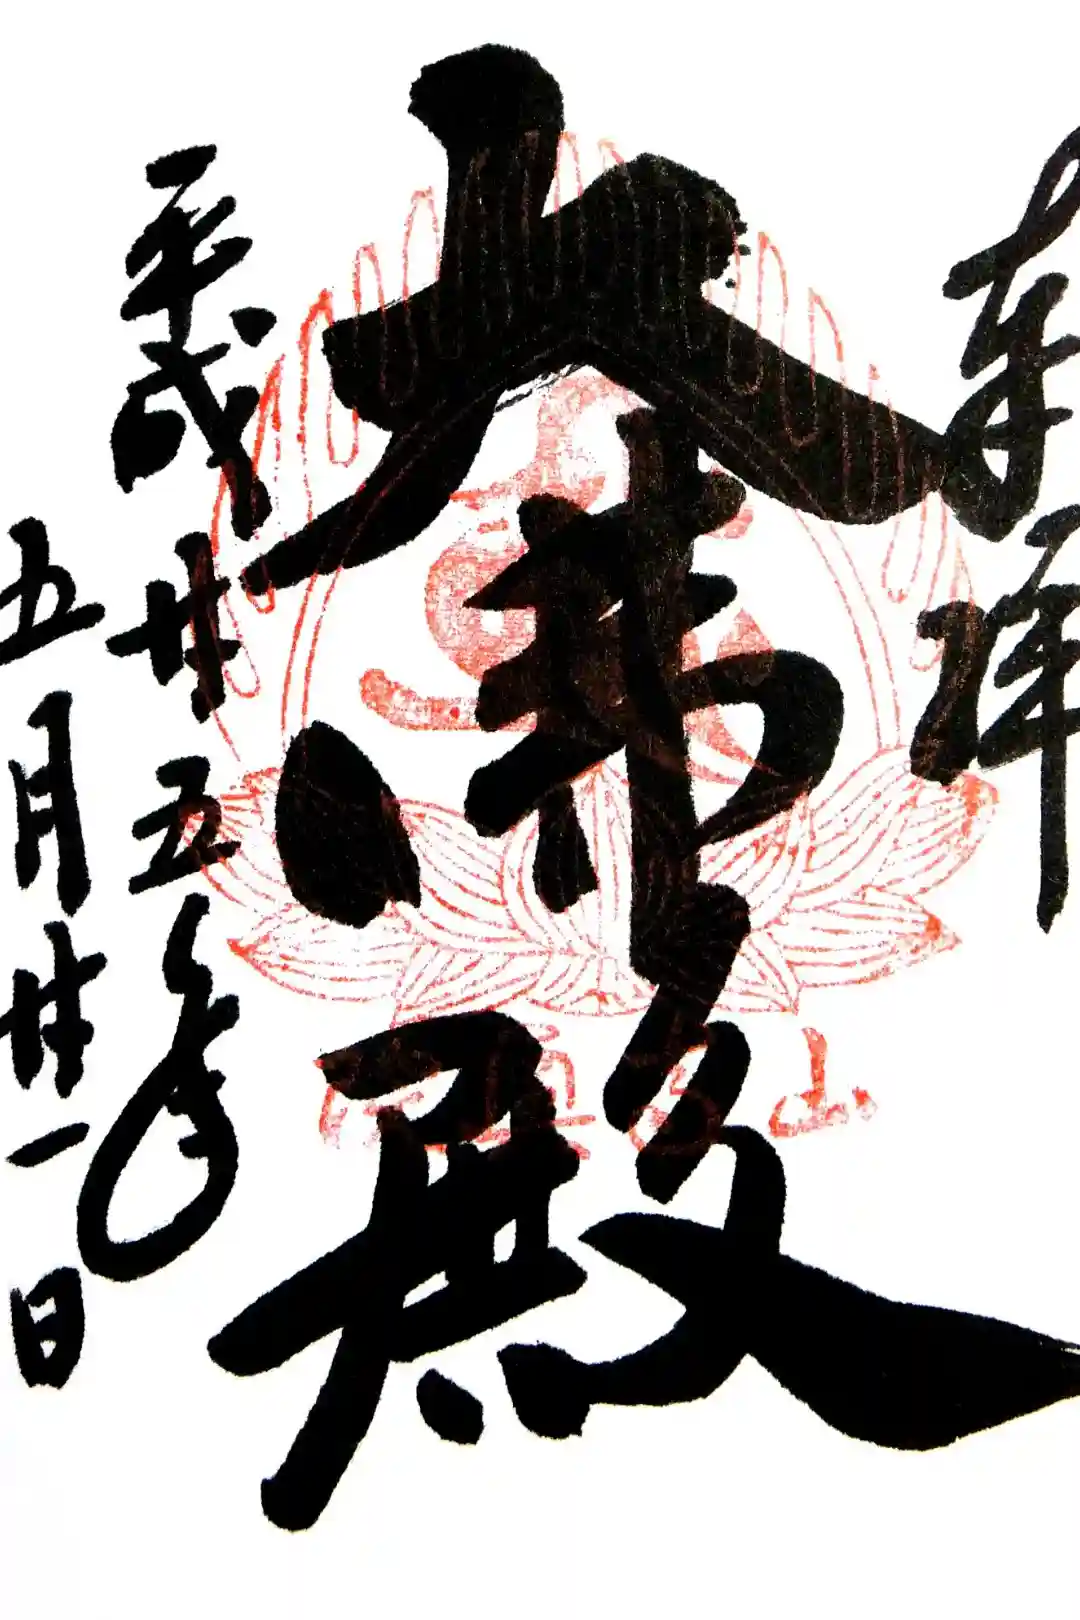 奉拝
大悲殿
平成廿五年
五月廿一日